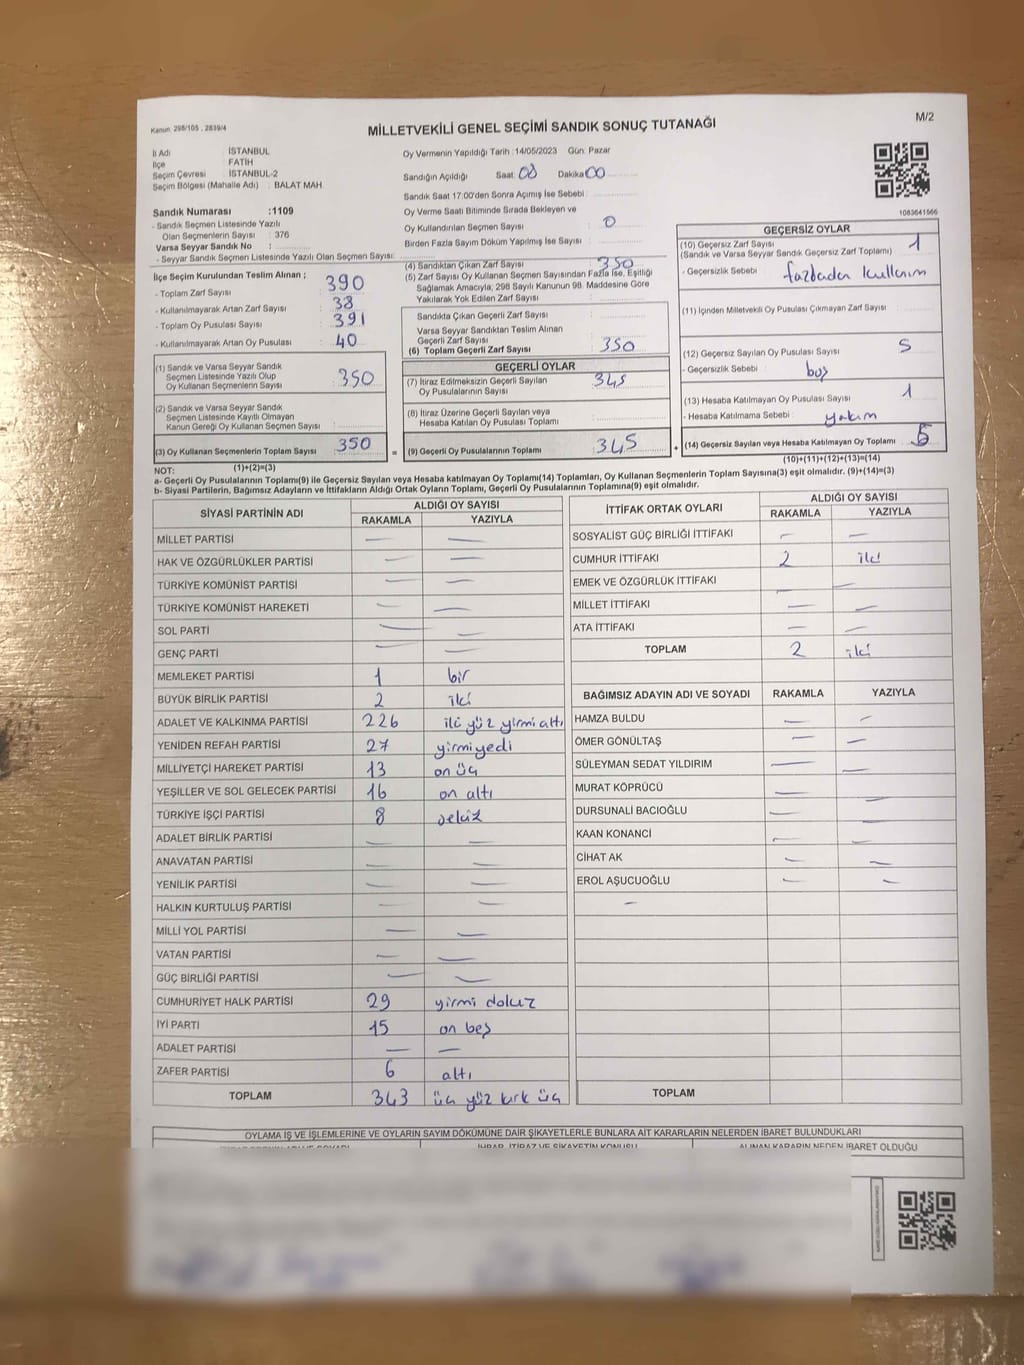 Kanun, 298/105 , 2839/4
MİLLETVEKİLİ GENEL SEÇİMİ SANDIK SONUÇ TUTANAĞI
M/2
İl Adı : İSTANBUL
İlçe : FATİH
Seçim Çevresi : İSTANBUL-2
Seçim Bölgesi (Mahalle Adı) : BALAT MAH.
Sandık Numarası :1109
- Sandık Seçmen Listesinde Yazılı
Olan Seçmenlerin Sayısı : 376
Varsa Seyyar Sandık No :
- Seyyar Sandık Seçmen Listesinde Yazılı Olan Seçmen Sayısı:
Oy Vermenin Yapıldığı Tarih :14/05/2023 Gün: Pazar
Sandığın Açıldığı Saat: 08 Dakika: 00
Sandık Saat 17:00'den Sonra Açımış İse Sebebi :
Oy Verme Saati Bitiminde Sırada Bekleyen ve
Oy Kullandırılan Seçmen Sayısı : 0
Birden Fazla Sayım Döküm Yapılmış İse Sayısı :
1083641566
İlçe Seçim Kurulundan Teslim Alınan ;
- Toplam Zarf Sayısı : 390
- Kullanılmayarak Artan Zarf Sayısı : 38
- Toplam Oy Pusulası Sayısı : 391
- Kullanılmayarak Artan Oy Pusulası : 40
(1) Sandık ve Varsa Seyyar Sandık
Seçmen Listesinde Yazılı Olup
Oy Kullanan Seçmenlerin Sayısı : 350
(2) Sandık ve Varsa Seyyar Sandık
Seçmen Listesinde Kayıtlı Olmayan
Kanun Gereği Oy Kullanan Seçmen Sayısı :
(3) Oy Kullanan Seçmenlerin Toplam Sayısı : 350
(1)+(2)=(3)
(4) Sandıktan Çıkan Zarf Sayısı : 350
(5) Zarf Sayısı Oy Kullanan Seçmen Sayısından Fazla İse, Eşitliği
Sağlamak Amacıyla; 298 Sayılı Kanunun 98. Maddesine Göre
Yakılarak Yok Edilen Zarf Sayısı :
Sandıkta Çıkan Geçerli Zarf Sayısı :
Varsa Seyyar Sandıktan Teslim Alınan
Geçerli Zarf Sayısı :
(6) Toplam Geçerli Zarf Sayısı : 350
GEÇERLİ OYLAR
(7) İtiraz Edilmeksizin Geçerli Sayılan
Oy Pusulalarının Sayısı : 345
(8) İtiraz Üzerine Geçerli Sayılan veya
Hesaba Katılan Oy Pusulası Toplamı :
= (9) Geçerli Oy Pusulalarının Toplamı : 345
GEÇERSİZ OYLAR
(10) Geçersiz Zarf Sayısı : 1
(Sandık ve Varsa Seyyar Sandık Geçersiz Zarf Toplamı)
- Geçersizlik Sebebi : fazladan kullanım
(11) İçinden Milletvekili Oy Pusulası Çıkmayan Zarf Sayısı :
(12) Geçersiz Sayılan Oy Pusulası Sayısı : 5
- Geçersizlik Sebebi : boş
(13) Hesaba Katılmayan Oy Pusulası Sayısı : 1
- Hesaba Katılmama Sebebi : yakım
+ (14) Geçersiz Sayılan veya Hesaba Katılmayan Oy Toplamı : 5
(10)+(11)+(12)+(13)=(14)
NOT:
a- Geçerli Oy Pusulalarının Toplamı(9) ile Geçersiz Sayılan veya Hesaba katılmayan Oy Toplamı(14) Toplamları, Oy Kullanan Seçmenlerin Toplam Sayısına(3) eşit olmalıdır. (9)+(14)=(3)
b- Siyasi Partilerin, Bağımsız Adayların ve İttifakların Aldığı Ortak Oyların Toplamı, Geçerli Oy Pusulalarının Toplamına(9) eşit olmalıdır.
SİYASİ PARTİNİN ADI ALDIĞI OY SAYISI
RAKAMLA YAZIYLA
MİLLET PARTİSI — —
HAK VE ÖZGÜRLÜKLER PARTİSİ — —
TÜRKİYE KOMÜNİST PARTİSİ — —
TÜRKİYE KOMÜNİST HAREKETİ — —
SOL PARTİ — —
GENÇ PARTİ — —
MEMLEKET PARTİSİ 1 bir
BÜYÜK BİRLİK PARTİSİ 2 iki
ADALET VE KALKINMA PARTİSİ 226 iki yüz yirmi altı
YENİDEN REFAH PARTİSİ 27 yirmiyedi
MİLLİYETÇİ HAREKET PARTİSİ 13 on üç
YEŞİLLER VE SOL GELECEK PARTİSİ 16 on altı
TÜRKİYE İŞÇİ PARTİSİ 8 sekiz
ADALET BİRLİK PARTİSİ — —
ANAVATAN PARTİSİ — —
YENİLİK PARTİSİ — —
HALKIN KURTULUŞ PARTİSİ — —
MİLLİ YOL PARTİSİ — —
VATAN PARTİSİ — —
GÜÇ BİRLİĞİ PARTİSİ — —
CUMHURİYET HALK PARTİSİ 29 yirmi dokuz
İYİ PARTİ 15 on beş
ADALET PARTİSİ — —
ZAFER PARTİSİ 6 altı
TOPLAM 343 üç yüz kırk üç
İTTİFAK ORTAK OYLARI ALDIĞI OY SAYISI
RAKAMLA YAZIYLA
SOSYALİST GÜÇ BİRLİĞİ İTTİFAKI — —
CUMHUR İTTİFAKI 2 iki
EMEK VE ÖZGÜRLÜK İTTİFAKI — —
MİLLET İTTİFAKI — —
ATA İTTİFAKI — —
TOPLAM 2 iki
BAĞIMSIZ ADAYIN ADI VE SOYADI RAKAMLA YAZIYLA
HAMZA BULDU — —
ÖMER GÖNÜLTAŞ — —
SÜLEYMAN SEDAT YILDIRIM — —
MURAT KÖPRÜCÜ — —
DURSUNALİ BACIOĞLU — —
KAAN KONANCİ — —
CİHAT AK — —
EROL AŞUCUOĞLU — —
—
TOPLAM
OYLAMA İŞ VE İŞLEMLERİNE VE OYLARIN SAYIM DÖKÜMÜNE DAİR ŞİKAYETLERLE BUNLARA AİT KARARLARIN NELERDEN İBARET BULUNDUKLARI
İHBAR, İTİRAZ VE ŞİKAYETİN KONUSU
ALINAN KARARIN NEDEN İBARET OLDUĞU